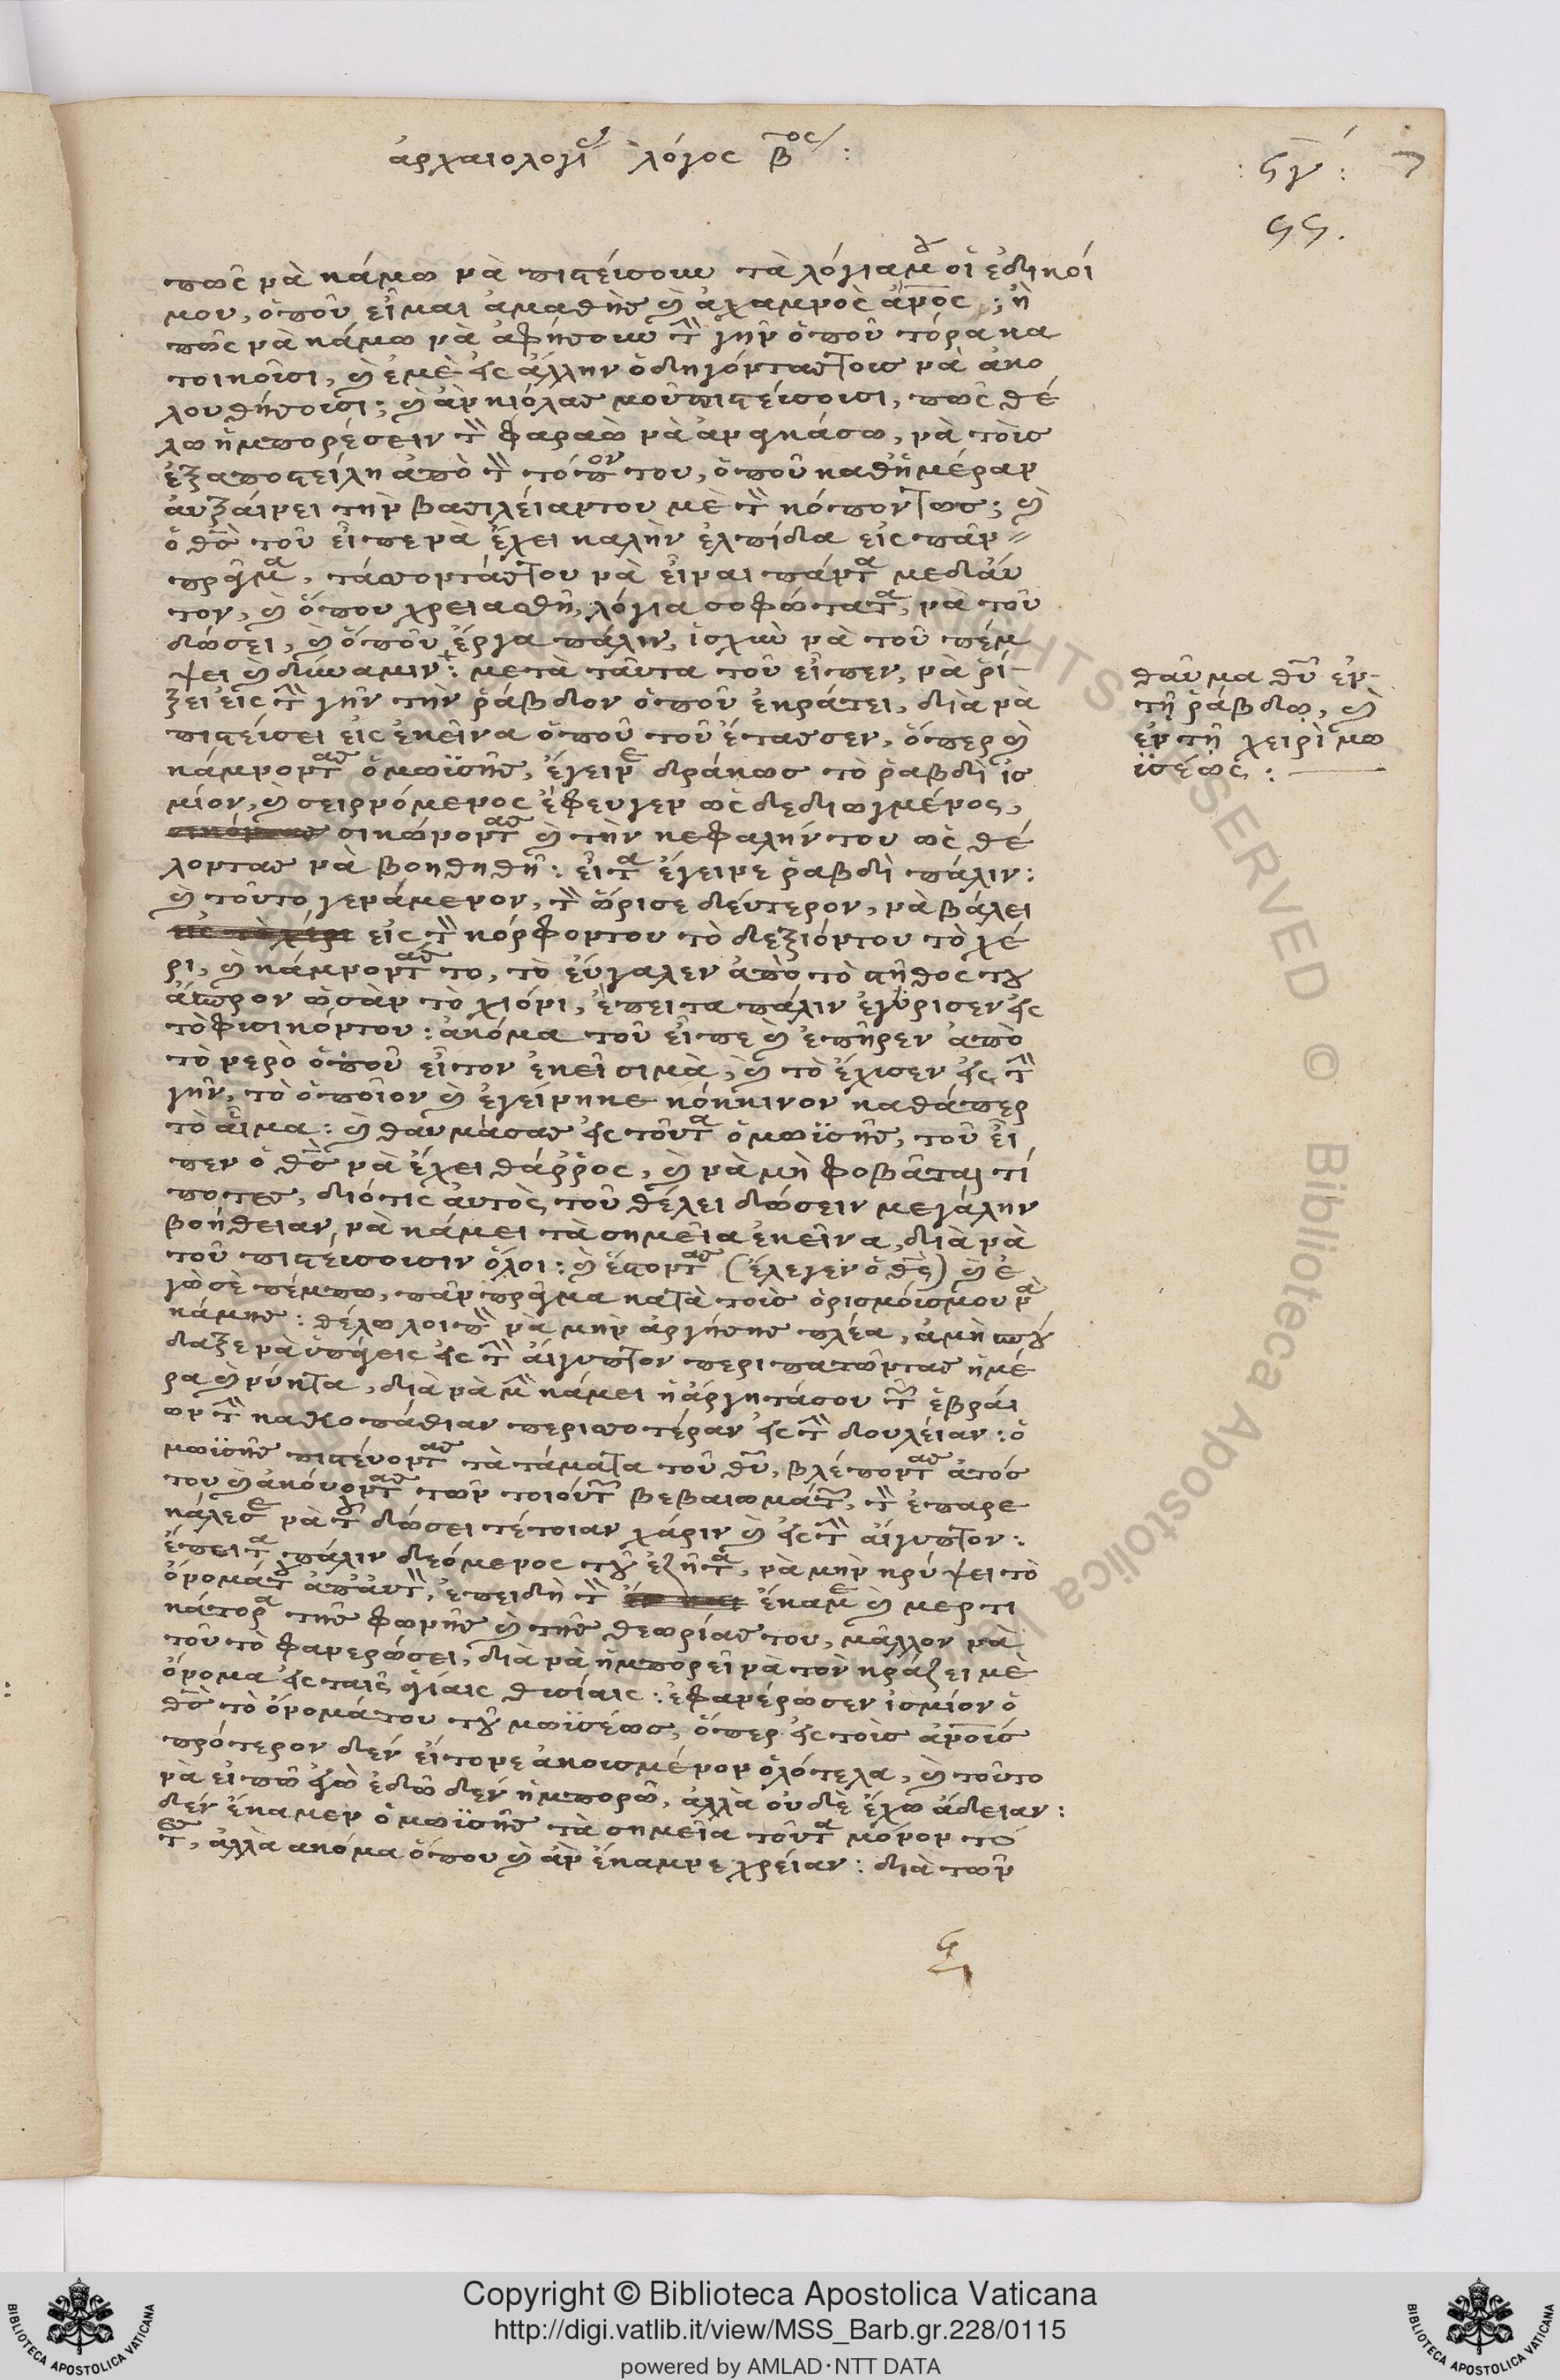 ἀρχαιολογί λόγος βος:
:ϟγ:
ϟϛ.
πῶς νὰ κάμω νὰ πιστέυσουν τὰ λόγιαμου οἱ ἐδικοί
μου, ὁποῦ εἶμαι ἀμαθὴς καὶ ἀχαμνὸς ἄνος; ἢ
πῶς νὰ κάμω νὰ ἀφήσουν τὴν γῆν ὁποῦ τόρα κα
τοικοῦσι, καὶ ἐμὲ εἰς ἄλλην ὁδηγόντας τους νὰ ἀκο
λουθήσουσι; καὶ ἂν κιόλας μοῦ πιστέυσουσι, πῶς θέ
λω ἠμπορέσειν τὸν φαραὼ νὰ ἀναγκάσω, νὰ τοὺς
ἐξαποστείλη ἀπὸ τὸν τόπον του, ὁποῦ καθ' ἡμέραν
ἀυξάινει τὴν βασιλείαντου μὲ τὸν κόπον τως; καὶ
ὁ θς τοῦ εἶπε νὰ ἔχει καλὴν ἐλπίδα εἰς πᾶν
πρᾶγμα, τάσσοντάς του νὰ εἶναι πάντα μεδ' ἀυ
τον, καὶ ὅπου χρειασθῆ, λόγια σοφώτατα, νὰ τοῦ
δώσει, καὶ ὁποῦ ἔργα πάλιν, ἰσχὺν νὰ τοῦ πέμ
ψει καὶ δύναμιν: μετὰ ταῦτα τοῦ εἶπεν, νὰ ῥί
ξει εἰς τὴν γῆν τὴν ῥάβδον ὁποῦ ἐκράτει, διὰ νὰ
πιστέυσει εἰς ἐκεῖνα ὁποῦ τοῦ ἔτασσεν, ὅπερ καὶ
κάμνοντας ὁ μωϋσῆς, ἔγεινε δράκως τὸ ῥαβδὶ ἰσ
μίον, καὶ σειρνόμενος ἔφευγεν ὡς δεδιωγμένος,
σικώνοντας καὶ τὴν κεφαλήν του ὡς θέ
λοντας νὰ βοηθηθῆ: εἶτα ἔγεινε ῥαβδὶ πάλιν:
καὶ τοῦτο γενάμενον, τὸν ὥρισε δέυτερον, νὰ βάλει
εἰς τὸν κόρφοντου τὸ δεξιόντου τὸ χέ
ρι, καὶ κάμνοντας το, τὸ ἔυγαλεν ἀπὸ τὸ στῆθος του
ἄσπρον ὡσὰν τὸ χιόνι, ἔπειτα πάλιν ἐγύρισεν εἰς
τὸ φυσικόντου: ἀκόμα τοῦ εἶπε καὶ ἐπῆρεν ἀπὸ
τὸ νερὸ ὁποῦ εἶτον ἐκεῖ σιμὰ, καὶ τὸ ἔχισεν εἰς τὴν
γῆν, τὸ ὁποῖον καὶ ἐγείνηκε κόκκινον καθάπερ
τὸ αἷμα: καὶ θαυμάσας εἰς τοῦτα ὁ μωϋσῆς, τοῦ εἶ
πεν ὁ θς νὰ ἔχει θάῤῥος, καὶ νὰ μὴ φοβᾶται τί
ποτες, διότις ἀυτὸς τοῦ θέλει δώσειν μεγάλην
βοήθειαν, νὰ κάμει τὰ σημεῖα ἐκεῖνα, διὰ νὰ
τοῦ πιστεύσουσιν ὅλοι: καὶ ἔστοντας (ἔλεγεν ὁ θς) καὶ ἐ
γὼ σὲ πέμπω, πᾶν πρᾶγμα κατὰ τοὺς ὁρισμόυσμου νὰ
κάμης: θέλω λοιπὸν νὰ μὴν ἀργήσης πλέα, ἀμὴ σπού
δαξε νὰ ὑπάγεις εἰς τὴν ἄιγυπτον περιπατῶντας ἡμέ
ρα καὶ νύκτα, διὰ νὰ μὴν κάμει ἡ ἀργητάσου τῶν ἑβράι
ων τὴν κακοπάθιαν περισσοτέραν εἰς τὴν δουλείαν: ὁ
μωϋσῆς πιστέυοντας τὰ τάματα τοῦ θῦ, βλέποντας ἀτός
του καὶ ἀκούοντας τῶν τοιούτων βεβαιωμάτων, τὸν ἐπαρε
κάλεσε νὰ τοῦ δώσει τέτοιαν χάριν καὶ εἰς τὴν ἄιγυπτον:
ἔπειτα πάλιν δεόμενος του ἐζήτα, νὰ μὴν κρύψει τὸ
ὄνομάτου ἀπ' ἀυτὸν, ἐπειδὴ τὸν ἔκαμε καὶ μερτι
κάτορα τῆς φωνῆς καὶ τῆς θεωρίας του, μᾶλλον νὰ
τοῦ τὸ φανερώσει, διὰ νὰ ἠμπορεῖ νὰ τὸν κράζει μὲ
ὄνομα εἰς ταῖς ἁγίαις θυσίαις: ἐφανέρωσεν ἰσμίον ὁ
θς τὸ ὄνομάτου τοῦ μωϋσέως, ὅπερ εἰς τοὺς ἀνους
πρότερον δὲν εἴτονε ἀκουσμένον ὁλότελα, καὶ τοῦτο
νὰ εἰπῶ ἐγὼ ἐδῶ δὲν ἠμπορῶ, ἀλλὰ οὐδὲ ἔχω ἄδειαν:
δὲν ἔκαμεν ὁ μωϋσῆς τὰ σημεῖα τοῦτα μόνον τό
τε, ἀλλὰ ακόμα ὅπου καὶ ἂν ἔκαμνε χρείαν: διὰ τῶν
θαῦμα θῦ ἐν
τῇ ῥάβδω, καὶ
ἐν τῇ χειρὶ μω
ϋσέως:
Copyright © Biblioteca Apostolica Vaticana
http://digi.vatlib.it/view/MSS_Barb.gr.228/0115
powered by AMLAD·NTT DATA